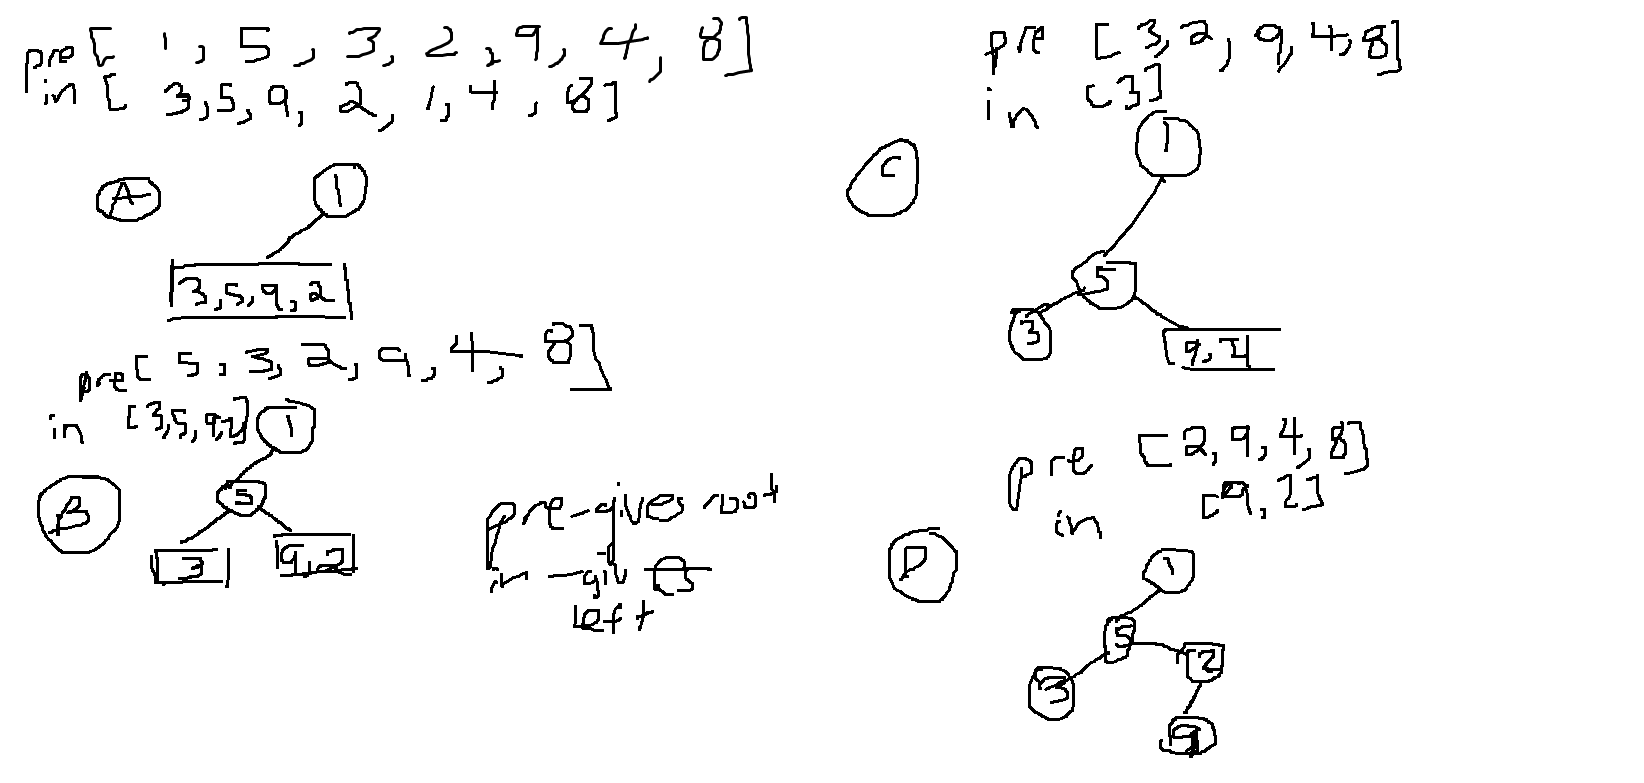 pre [ 1, 5, 3, 2, 9, 4, 8]
in [ 3,5,9, 2, 1,4, 8]
A
1
3,5,9,2
pre[ 5, 3, 2, 9, 4, 8]
in [3,5,9,2]
1
B
5
3
9,2
pre-gives root
in - giv es
left
pre [3,2, 9,4,8]
in [3]
C
1
5
3
pre [2,9,4,8]
in [9,2]
D
1
5
2
3
9